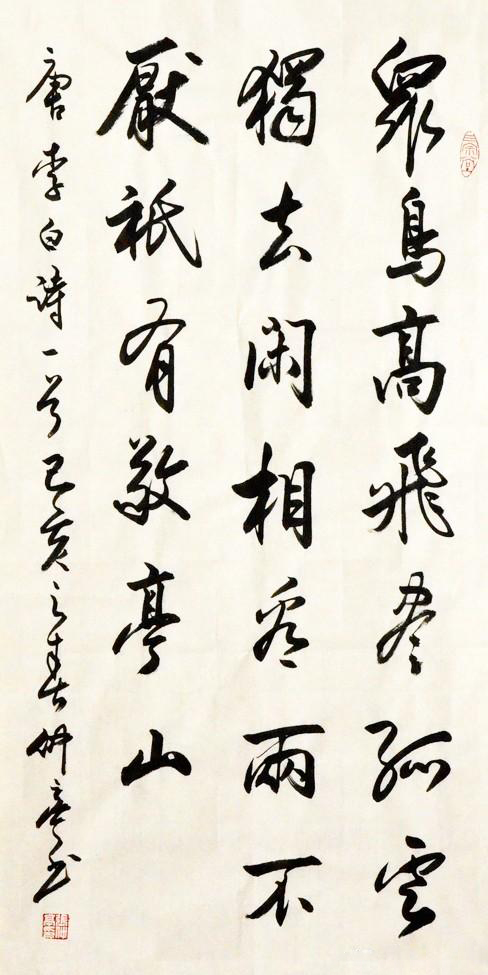 眾鳥高飛尽孤雲
獨去閑相看兩不
厭祇有敬亭山
唐李白詩一首己亥之春仲亭书